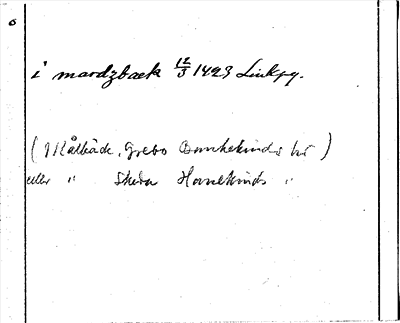 i mardzbaek 12/3 1423 Linkpg.
(Målbäck, Grebo Bankekinds hd)
eller " Skeda Hanekinds "